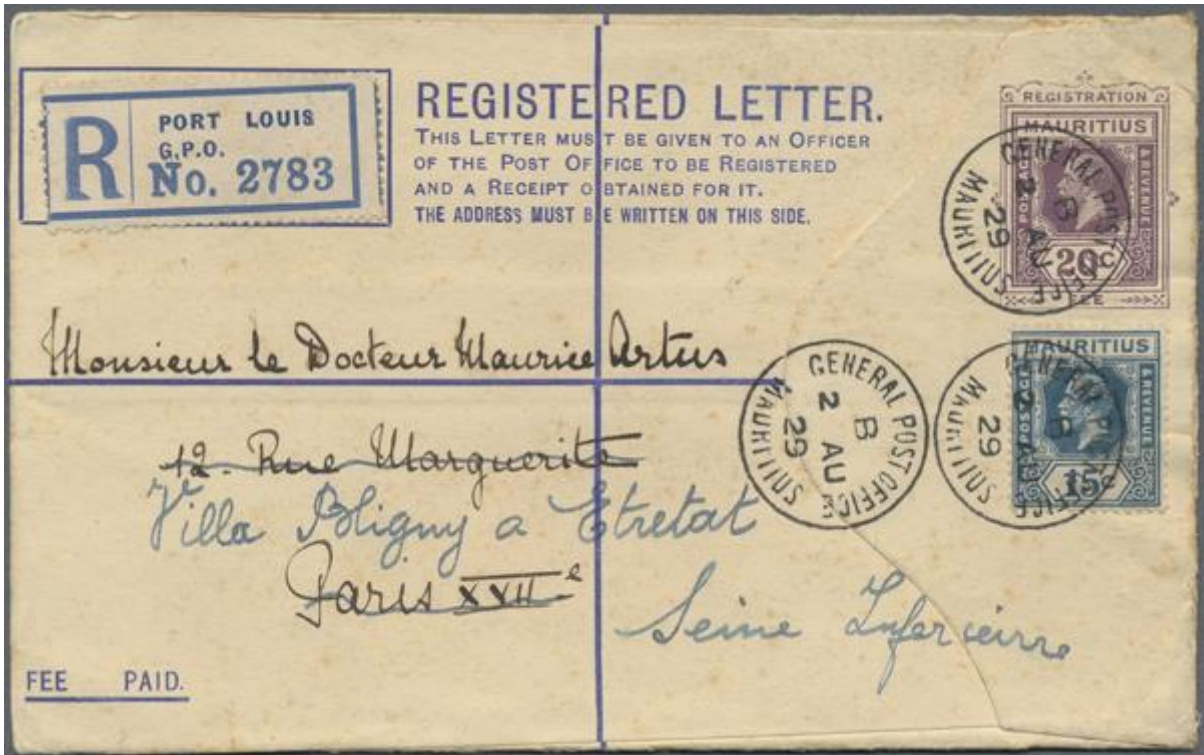 PORT LOUIS
G.P.O.
R No. 2783
REGISTERED LETTER.
THIS LETTER MUST BE GIVEN TO AN OFFICER
OF THE POST OFFICE TO BE REGISTERED
AND A RECEIPT OBTAINED FOR IT.
THE ADDRESS MUST BE WRITTEN ON THIS SIDE.
REGISTRATION
MAURITIUS
POSTAGE & REVENUE
20c
FEE
GENERAL POST OFFICE
B
2 AU
29
MAURITIUS
Monsieur le Docteur Maurice Artus
MAURITIUS
POSTAGE & REVENUE
15c
GENERAL POST OFFICE
B
2 AU
29
MAURITIUS
GENERAL POST OFFICE
B
2 AU
29
MAURITIUS
12. Rue Marguerite
Villa Bligny a Etretat
Paris XVIIe
Seine Inferieure
FEE PAID.